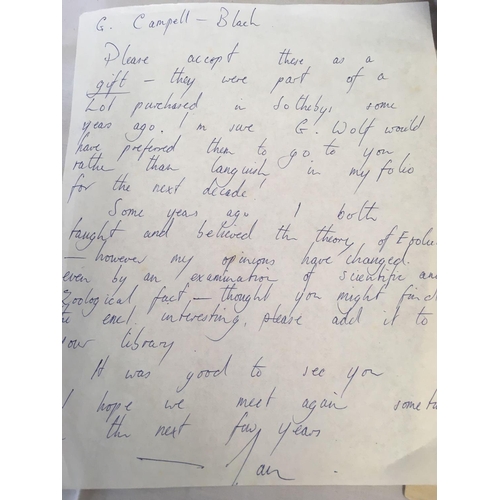 G. Campell - Black.
Please accept these as a
gift - they were part of a
Lot purchased in Sothebys some
years ago. I'm sure G. Wolf would
have preferred them to go to you
rathe than languish in my folio
for the next decade!
Some years ago I both
taught and believed the theory of Evolu
- however my opinions have changed.
even by an examination of scientific and
Zoological fact, - thought you might find
the encl. interesting, please add it to
your library
It was good to see you
I hope we meet again someti
the next few years
Ian.